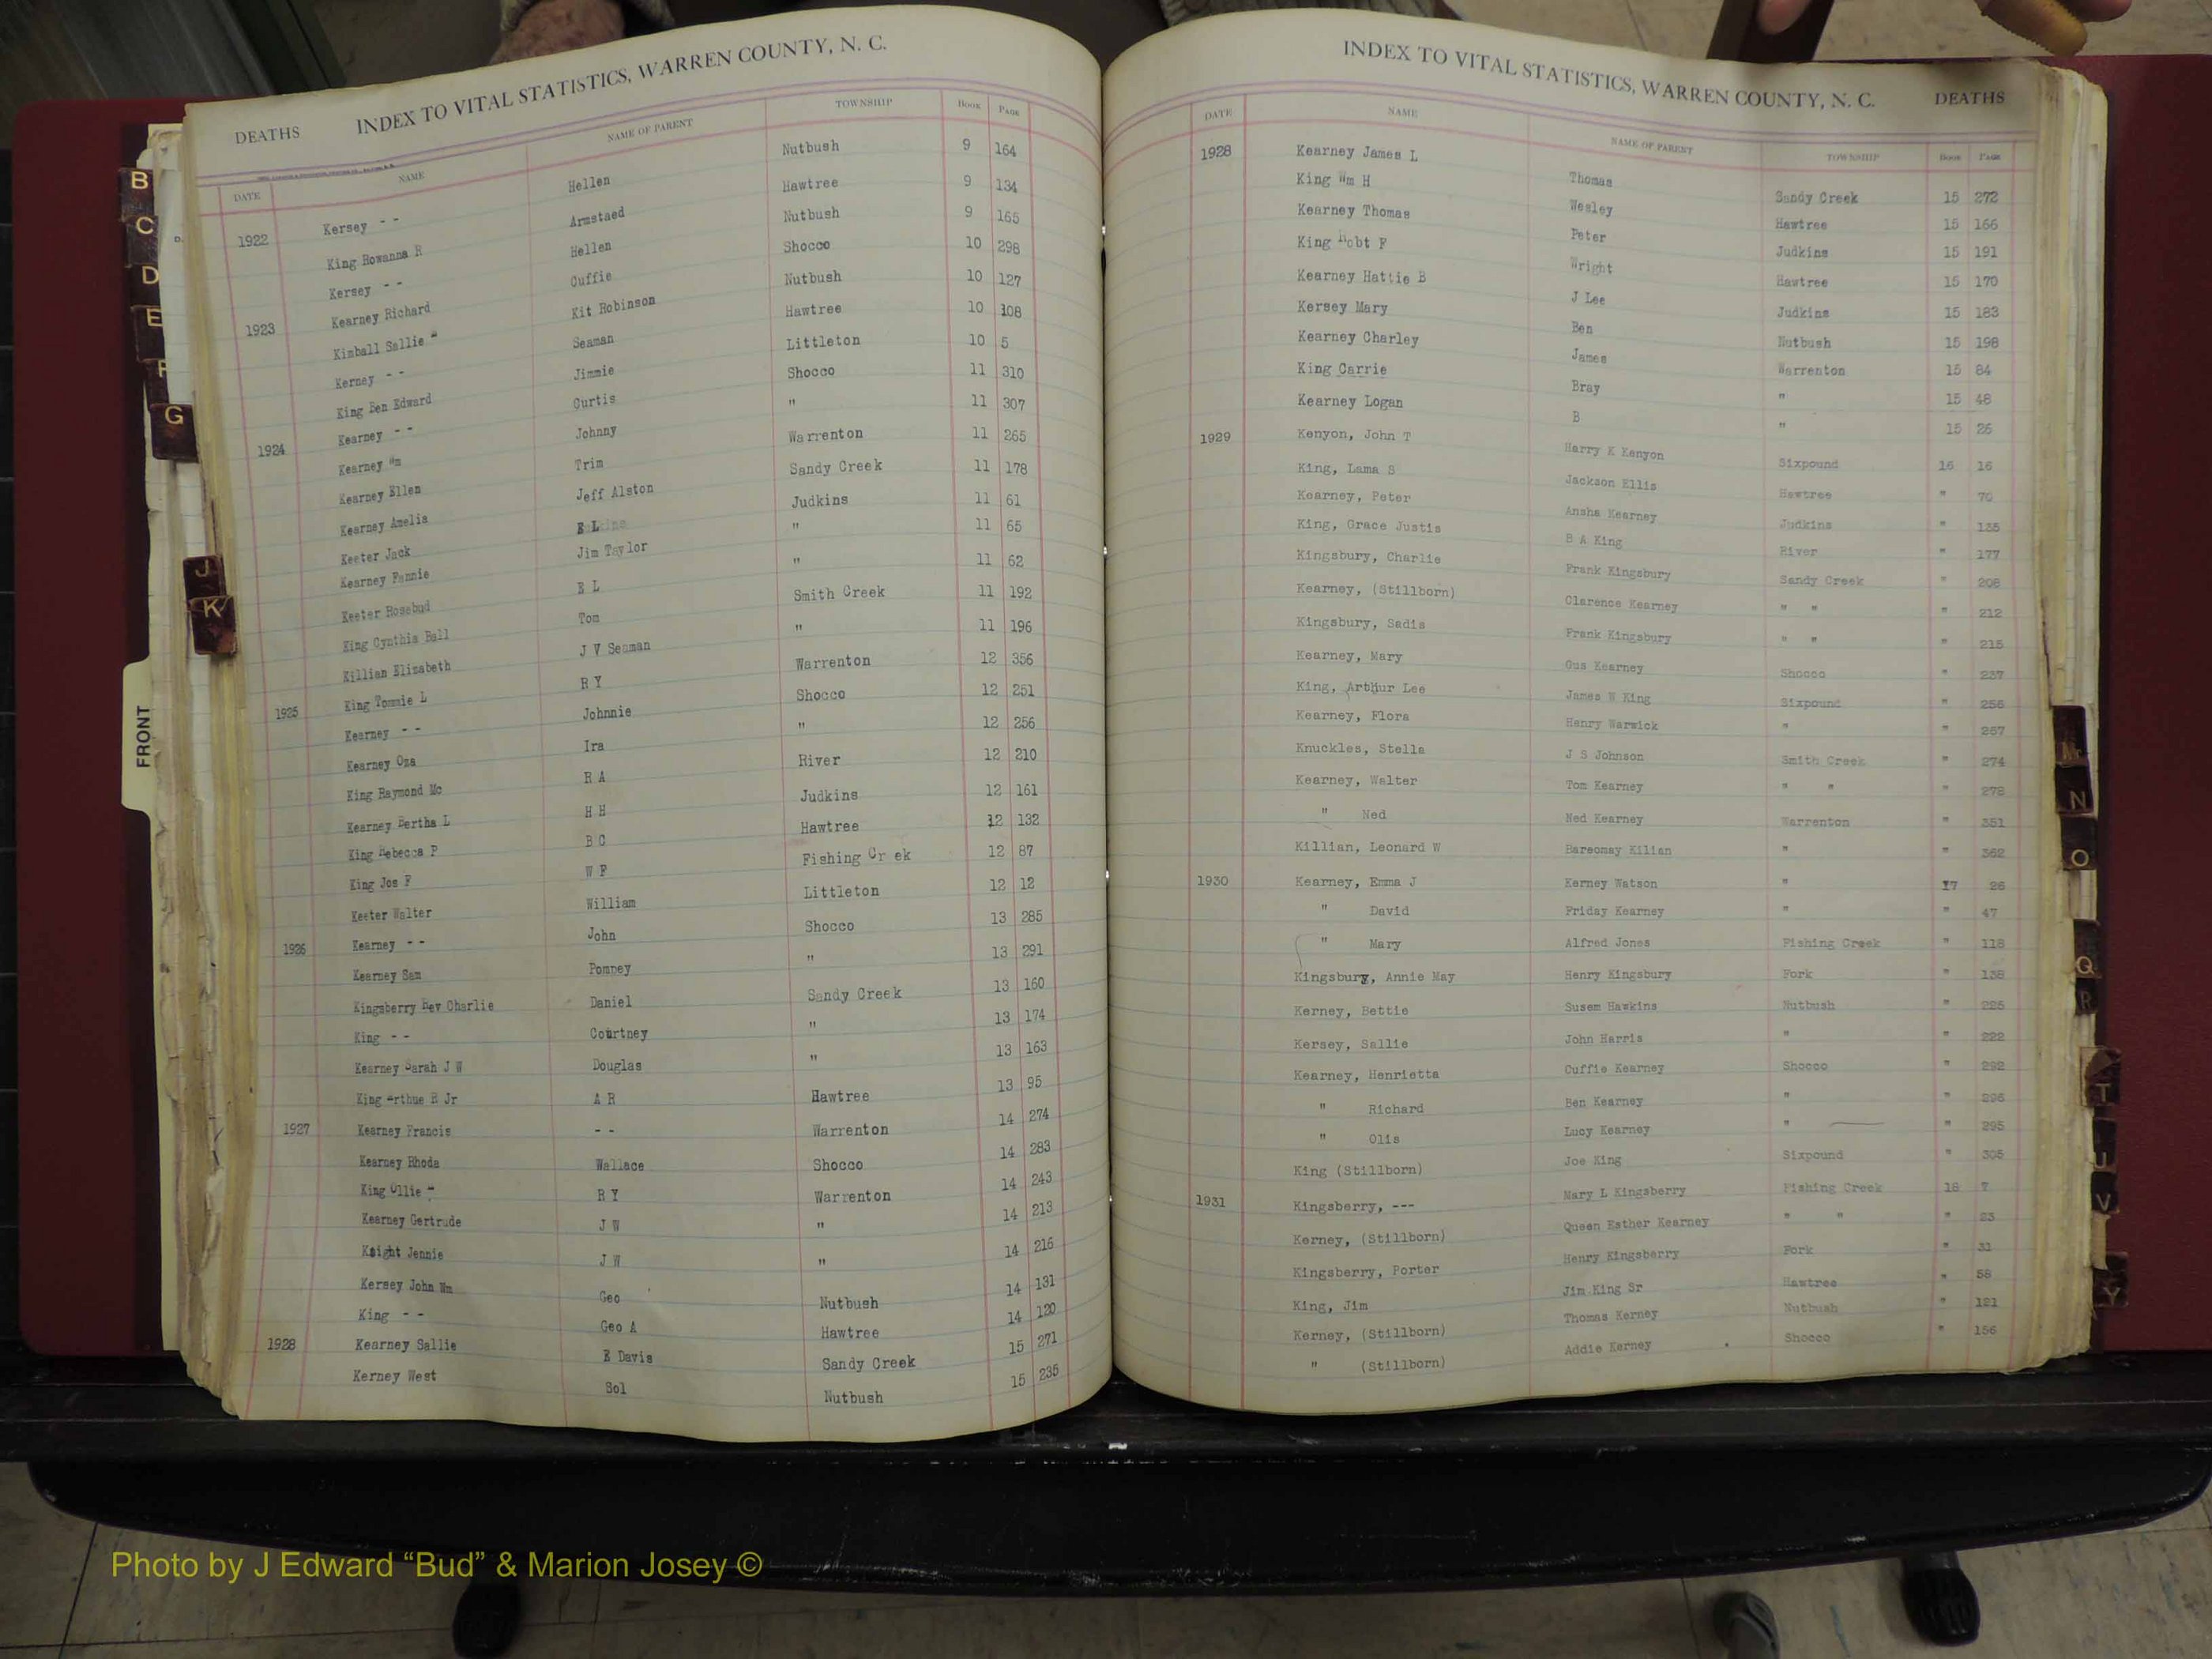 DEATHS INDEX TO VITAL STATISTICS, WARREN COUNTY, N. C.
DATE NAME NAME OF PARENT TOWNSHIP BOOK PAGE
1922 Kersey - - Hellen Nutbush 9 164
King Rowanna R Armstaed Hawtree 9 134
Kersey - - Hellen Nutbush 9 165
1923 Kearney Richard Cuffie Shocco 10 298
Kimball Sallie Kit Robinson Nutbush 10 127
Kerney - - Seaman Hawtree 10 108
King Ben Edward Jimmie Littleton 10 5
1924 Kearney - - Curtis Shocco 11 310
Kearney Wm Johnny " 11 307
Kearney Ellen Trim Warrenton 11 265
Kearney Amelia Jeff Alston Sandy Creek 11 178
Keeter Jack E L Judkins 11 61
Kearney Fannie Jim Taylor " 11 65
Keeter Rosebud E L " 11 62
King Cynthia Ball Tom Smith Creek 11 192
Killian Elizabeth J V Seaman " 11 196
1925 King Tommie L R Y Warrenton 12 356
Kearney - - Johnnie Shocco 12 251
Kearney Oza Ira " 12 256
King Raymond Mc R A River 12 210
Kearney Bertha L H H Judkins 12 161
King Rebecca P B C Hawtree 12 132
King Jos F W F Fishing Cr ek 12 87
Keeter Walter William Littleton 12 12
1926 Kearney - - John Shocco 13 285
Kearney Sam Pompey " 13 291
Kingsberry Rev Charlie Daniel Sandy Creek 13 160
King - - Courtney " 13 174
Kearney Sarah J W Douglas " 13 163
King Arthue R Jr A R Hawtree 13 95
1927 Kearney Francis - - Warrenton 14 274
Kearney Rhoda Wallace Shocco 14 283
King Ollie R Y Warrenton 14 243
Kearney Gertrude J W " 14 213
Knight Jennie J W " 14 216
Kersey John Wm Geo Nutbush 14 131
King - - Geo A Hawtree 14 120
1928 Kearney Sallie E Davis Sandy Creek 15 271
Kerney West Sol Nutbush 15 235
INDEX TO VITAL STATISTICS, WARREN COUNTY, N. C. DEATHS
DATE NAME NAME OF PARENT TOWNSHIP BOOK PAGE
1928 Kearney James L Thomas Sandy Creek 15 272
King Wm H Wesley Hawtree 15 166
Kearney Thomas Peter Judkins 15 191
King Robt F Wright Hawtree 15 170
Kearney Hattie B J Lee Judkins 15 183
Kersey Mary Ben Nutbush 15 198
Kearney Charley James Warrenton 15 84
King Carrie Bray " 15 48
Kearney Logan B " 15 26
1929 Kenyon, John T Harry K Kenyon Sixpound 16 16
King, Lama S Jackson Ellis Hawtree " 70
Kearney, Peter Ansha Kearney Judkins " 135
King, Grace Justis B A King River " 177
Kingsbury, Charlie Frank Kingsbury Sandy Creek " 208
Kearney, (Stillborn) Clarence Kearney " " " 212
Kingsbury, Sadis Frank Kingsbury " " " 215
Kearney, Mary Gus Kearney Shocco " 237
King, Arthur Lee James W King Sixpound " 256
Kearney, Flora Henry Warwick " " 257
Knuckles, Stella J S Johnson Smith Creek " 274
Kearney, Walter Tom Kearney " " " 278
" Ned Ned Kearney Warrenton " 351
Killian, Leonard W Bareomay Kilian " " 362
1930 Kearney, Emma J Kerney Watson " 17 26
" David Friday Kearney " " 47
" Mary Alfred Jones Fishing Creek " 118
Kingsbury, Annie May Henry Kingsbury Fork " 138
Kerney, Bettie Susem Hawkins Nutbush " 225
Kersey, Sallie John Harris " " 222
Kearney, Henrietta Cuffie Kearney Shocco " 292
" Richard Ben Kearney " " 296
" Olis Lucy Kearney " " 295
King (Stillborn) Joe King Sixpound " 305
1931 Kingsberry, --- Mary L Kingsberry Fishing Creek 18 7
Kerney, (Stillborn) Queen Esther Kearney " " " 23
Kingsberry, Porter Henry Kingsberry Fork " 31
King, Jim Jim King Sr Hawtree " 58
Kerney, (Stillborn) Thomas Kerney Nutbush " 121
" (Stillborn) Addie Kerney Shocco " 156
B
C
D
E
F
G
J
K
FRONT
N
O
Q
R
T
U
V
Y
Photo by J Edward “Bud” & Marion Josey ©